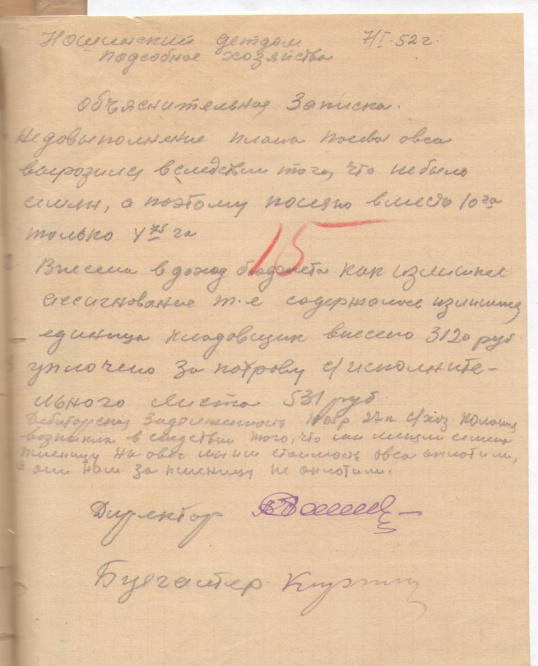 Ношинский детдом 7/I-52 г.
подсобное хозяйства
Объяснительная Записка.
Недовыполнение плана посева овса
выразилась вследствии того, что небыло
семян, а поэтому посеяно вместо 10 га
только 4 75 га
15
Внесена в доход бюджета как излишнее
ассигнование т-е содержалось излишняя
единица кладовщик внесено 3120 руб.
уплочено за потраву с/исполните-
льного листа 531 руб
Дебиторская Задолженность с/хоз.
возникла в следствии того, что
пшеницу на овес мы им стоимость овса оплотили,
а они нам за пшеницу не оплотили.
Директор
Бугалтер